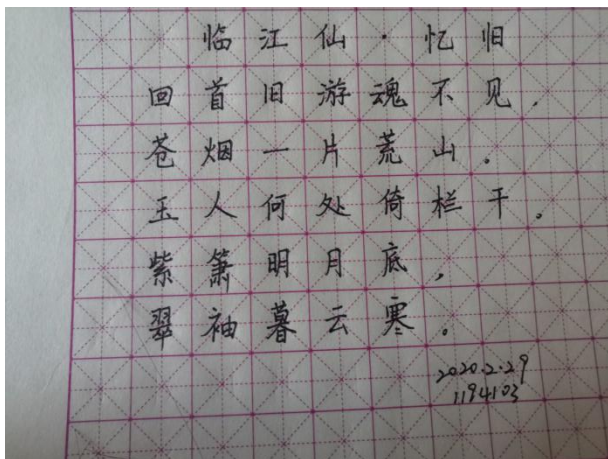 临江仙·忆旧
回首旧游魂不见,
苍烟一片荒山。
玉人何处倚栏干。
紫箫明月底,
翠袖暮云寒。
2020.2.29
1194103